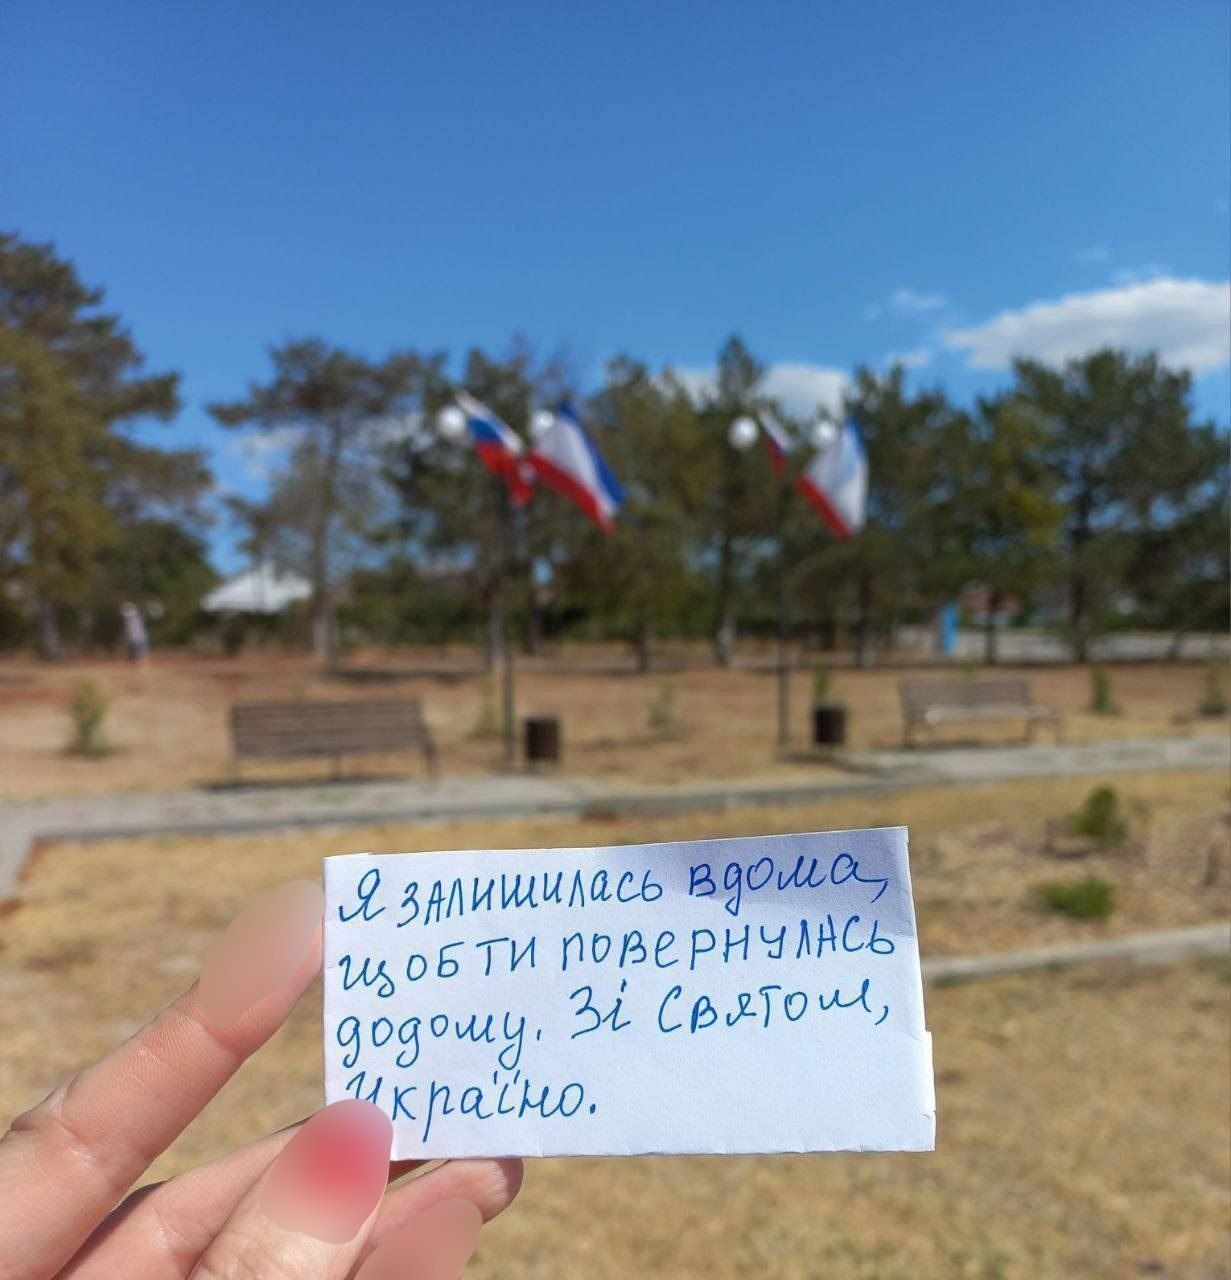 Я залишилась вдома,
щоб ти повернулась
додому. Зі святом,
Україно.